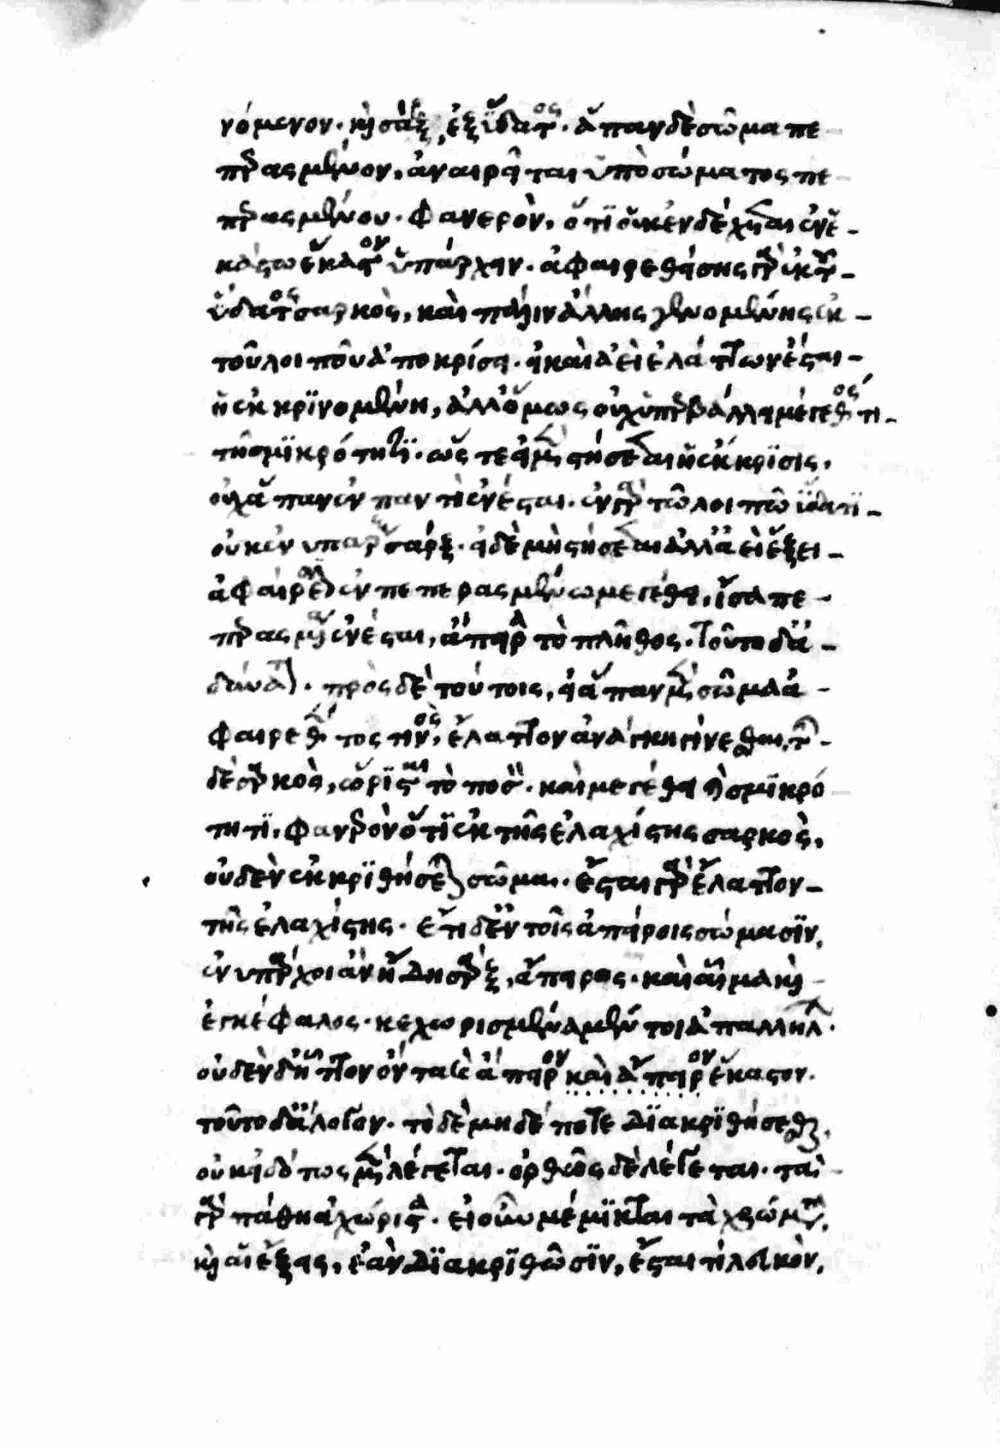 νόμενον· καὶ σὰρξ, ἐξ ὕδατος· ἅπαν δὲ σῶμα πε
περασμένον, ἀναιρεῖται ὑπὸ σώματος πε
περασμένου· φανερὸν, ὅτι οὐκ ἐνδέχεται ἐν ἑ
κάστω ἕκαστον ὑπάρχειν· ἀφαιρεθείσης γὰρ ἐκ τοῦ
ὕδατος σαρκὸς, καὶ πάλιν ἄλλης γενομένης ἐκ
τοῦ λοιποῦ ἀποκρίσει· εἰ καὶ ἀεὶ ἐλάττων ἔσται
ἡ ἐκκρινομένη, ἀλλ' ὅμως οὐχ ὑπερβάλλει μέγεθός τι
τῇ σμικρότητι· ὥστε εἰ μὲν στήσεται ἡ ἔκκρισις,
οὐχ ἅπαν ἐν παντὶ ἐνέσται· ἐν γὰρ τῶ λοιπῶ ὕδατι
οὐκ ἐνυπάρξει σάρξ· εἰ δὲ μὴ στήσεται ἀλλ' ἀεὶ ἕξει
ἀφαίρεσιν ἐν πεπερασμένω μεγέθει, ἴσα πε
περασμένα ἐνέσται, ἄπειρα τὸ πλῆθος· τοῦτο δ' ἀ
δύνατον· πρὸς δὲ τούτοις, εἰ ἅπαν μὲν σῶμα ἀ
φαιρεθέντος τινὸς, ἔλαττον ἀνάγκη γίνεσθαι, τῆς
δὲ σαρκὸς, ὥρισται τὸ ποσὸν· καὶ μεγέθει καὶ σμικρό
τητι, φανερὸν ὅτι ἐκ τῆς ἐλαχίστης σαρκὸς,
οὐδὲν ἐκκριθήσεται σῶμα· ἔσται γὰρ ἔλαττον
τῆς ἐλαχίστης· ἔτι δ' ἐν τοῖς ἀπείροις σώμασιν,
ἐνυπάρχοι ἂν ἤδη σὰρξ, ἄπειρος· καὶ αἷμα καὶ
ἐγκέφαλος· κεχωρισμένα μέντοι ἀπ' ἀλλήλων·
οὐδὲν δ' ἧττον ὄντα καὶ ἄπειρον καὶ ἄπειρον ἕκαστον·
τοῦτο δ' ἄλογον· τὸ δὲ μηδέποτε διακριθήσεσθαι,
οὐκ εἰδότως μὲν λέγεται· ὀρθῶς δὲ λέγεται· τὰ
γὰρ πάθη ἀχώριστα· εἰ οὖν μέμικται τὰ χρώματα,
καὶ αἱ ἕξεις, ἐὰν διακριθῶσιν, ἔσται τὶ λευκὸν,